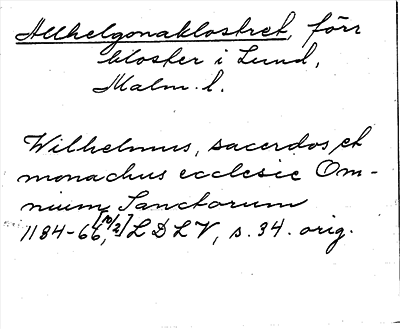 Allhelgonaklostret, förr
kloster i Lund,
Malm. l.
Wilhelmus, sacerdos et
monachus ecclesie Om-
nium Sanctorum
1184-66, [10/2] L D L V, s. 34. orig.